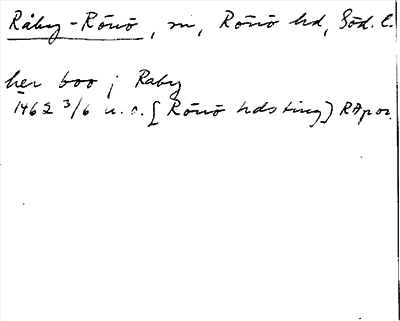 Råby-Rönö, sn, Rönö hd, Söd. l.
her boo j Raby
1462 3/6 u.o. [Rönö hdsting] RApor.